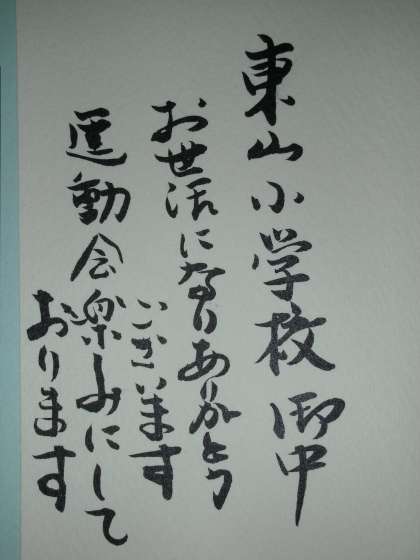 東山小学校 御中
お世話になりありがとう
ございます
運動会楽しみにして
おります